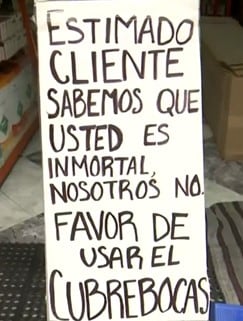 ESTIMADO
CLIENTE
SABEMOS QUE
USTED ES
INMORTAL,
NOSOTROS NO.
FAVOR DE
USAR EL
CUBREBOCAS